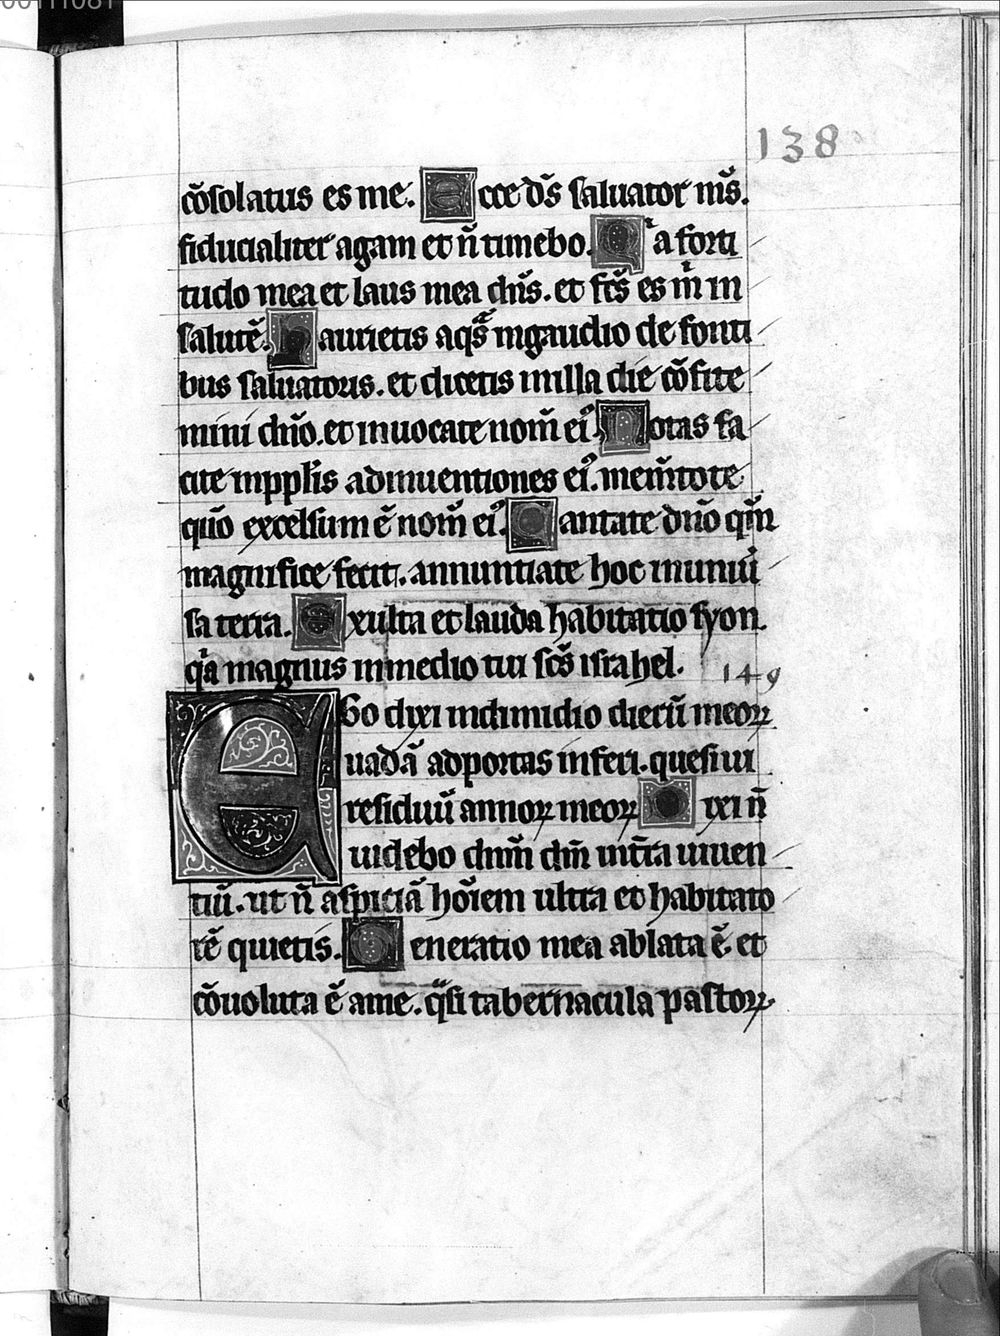 138
cõsolatus es me. Ecce dꝰs saluator mꝰs.
fiducialiter agam et ñ timebo. Qͥa forti
tudo mea et laus mea dñs. et fcꝰs es m̊ in
salutē. Haurietis aqͣs in gaudio de fonti
bus saluatoris. et dicetis in illa die cõfite
mini dño. et inuocate nom̄ eiꝰ. Notas fa
cite in pplis adinuentiones eiꝰ. mem̄tote
qūo excelsum ē nom̄ eiꝰ. Cantate dño qm̄
magnifice fecit. annuntiate hoc in uniũ
sa terra. Exulta et lauda habitatio syon.
qͥa magnus in medio tui scs israhel.
149
EGo dixi in dimidio dierū meoꝝ
uadā ad portas inferi. quesiui
residuū annoꝝ meoꝝ Dixi ñ
uidebo dñm dñm in t̄ra uiuen
tiū. ut ñ aspiciā hoīem ultra et habitato
rē quietis. Generatio mea ablata ē et
cõuoluta ē a me. qͣsi tabernacula pastoꝝ.